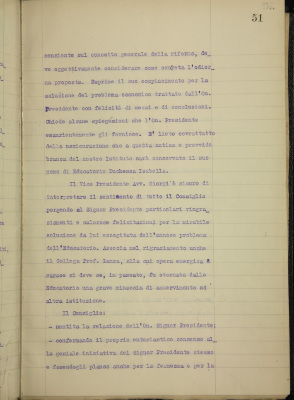 51
consiente sul concetto generale della riforma, de-
ve oggettivamente considerare come concreta l'odier
na proposta. Esprime il suo compiacimento per la
soluzione del problema economico trattato dall'On.
Presidente con felicità di mezzi e di conclusioni.
Chiede alcune spiegazioni che l'On. Presidente
esaurientemente gli fornisce. E' lieto soprattutto
della assicurazione che a questa antica e provvida
branca del nostro Istituto sarà conservato il no-
me di Educatorio Duchessa Isabella.
Il Vice Presidente Avv. Giorgi è sicuro di
interpretare il sentimento di tutto il Consiglio
porgendo al Signor Presidente particolari ringra-
ziamenti e calorose felicitazioni per la mirabile
soluzione da lui escogitata dell'annoso problema
dell'Educatorio. Associa nel ringraziamento anche
il Collega Prof. Lanza, alla cui opera energica e
sagace si deve se, in passato, fu stornata dallo
Educatorio una grave minaccia di asservimento ad
altra istituzione.
Il Consiglio:
- sentita la relazione dell'On. Signor Presidente;
- confermando il proprio entusiastico consenso al
la geniale iniziativa del Signor Presidente stesso
e facendogli plauso anche per la fermezza e per la